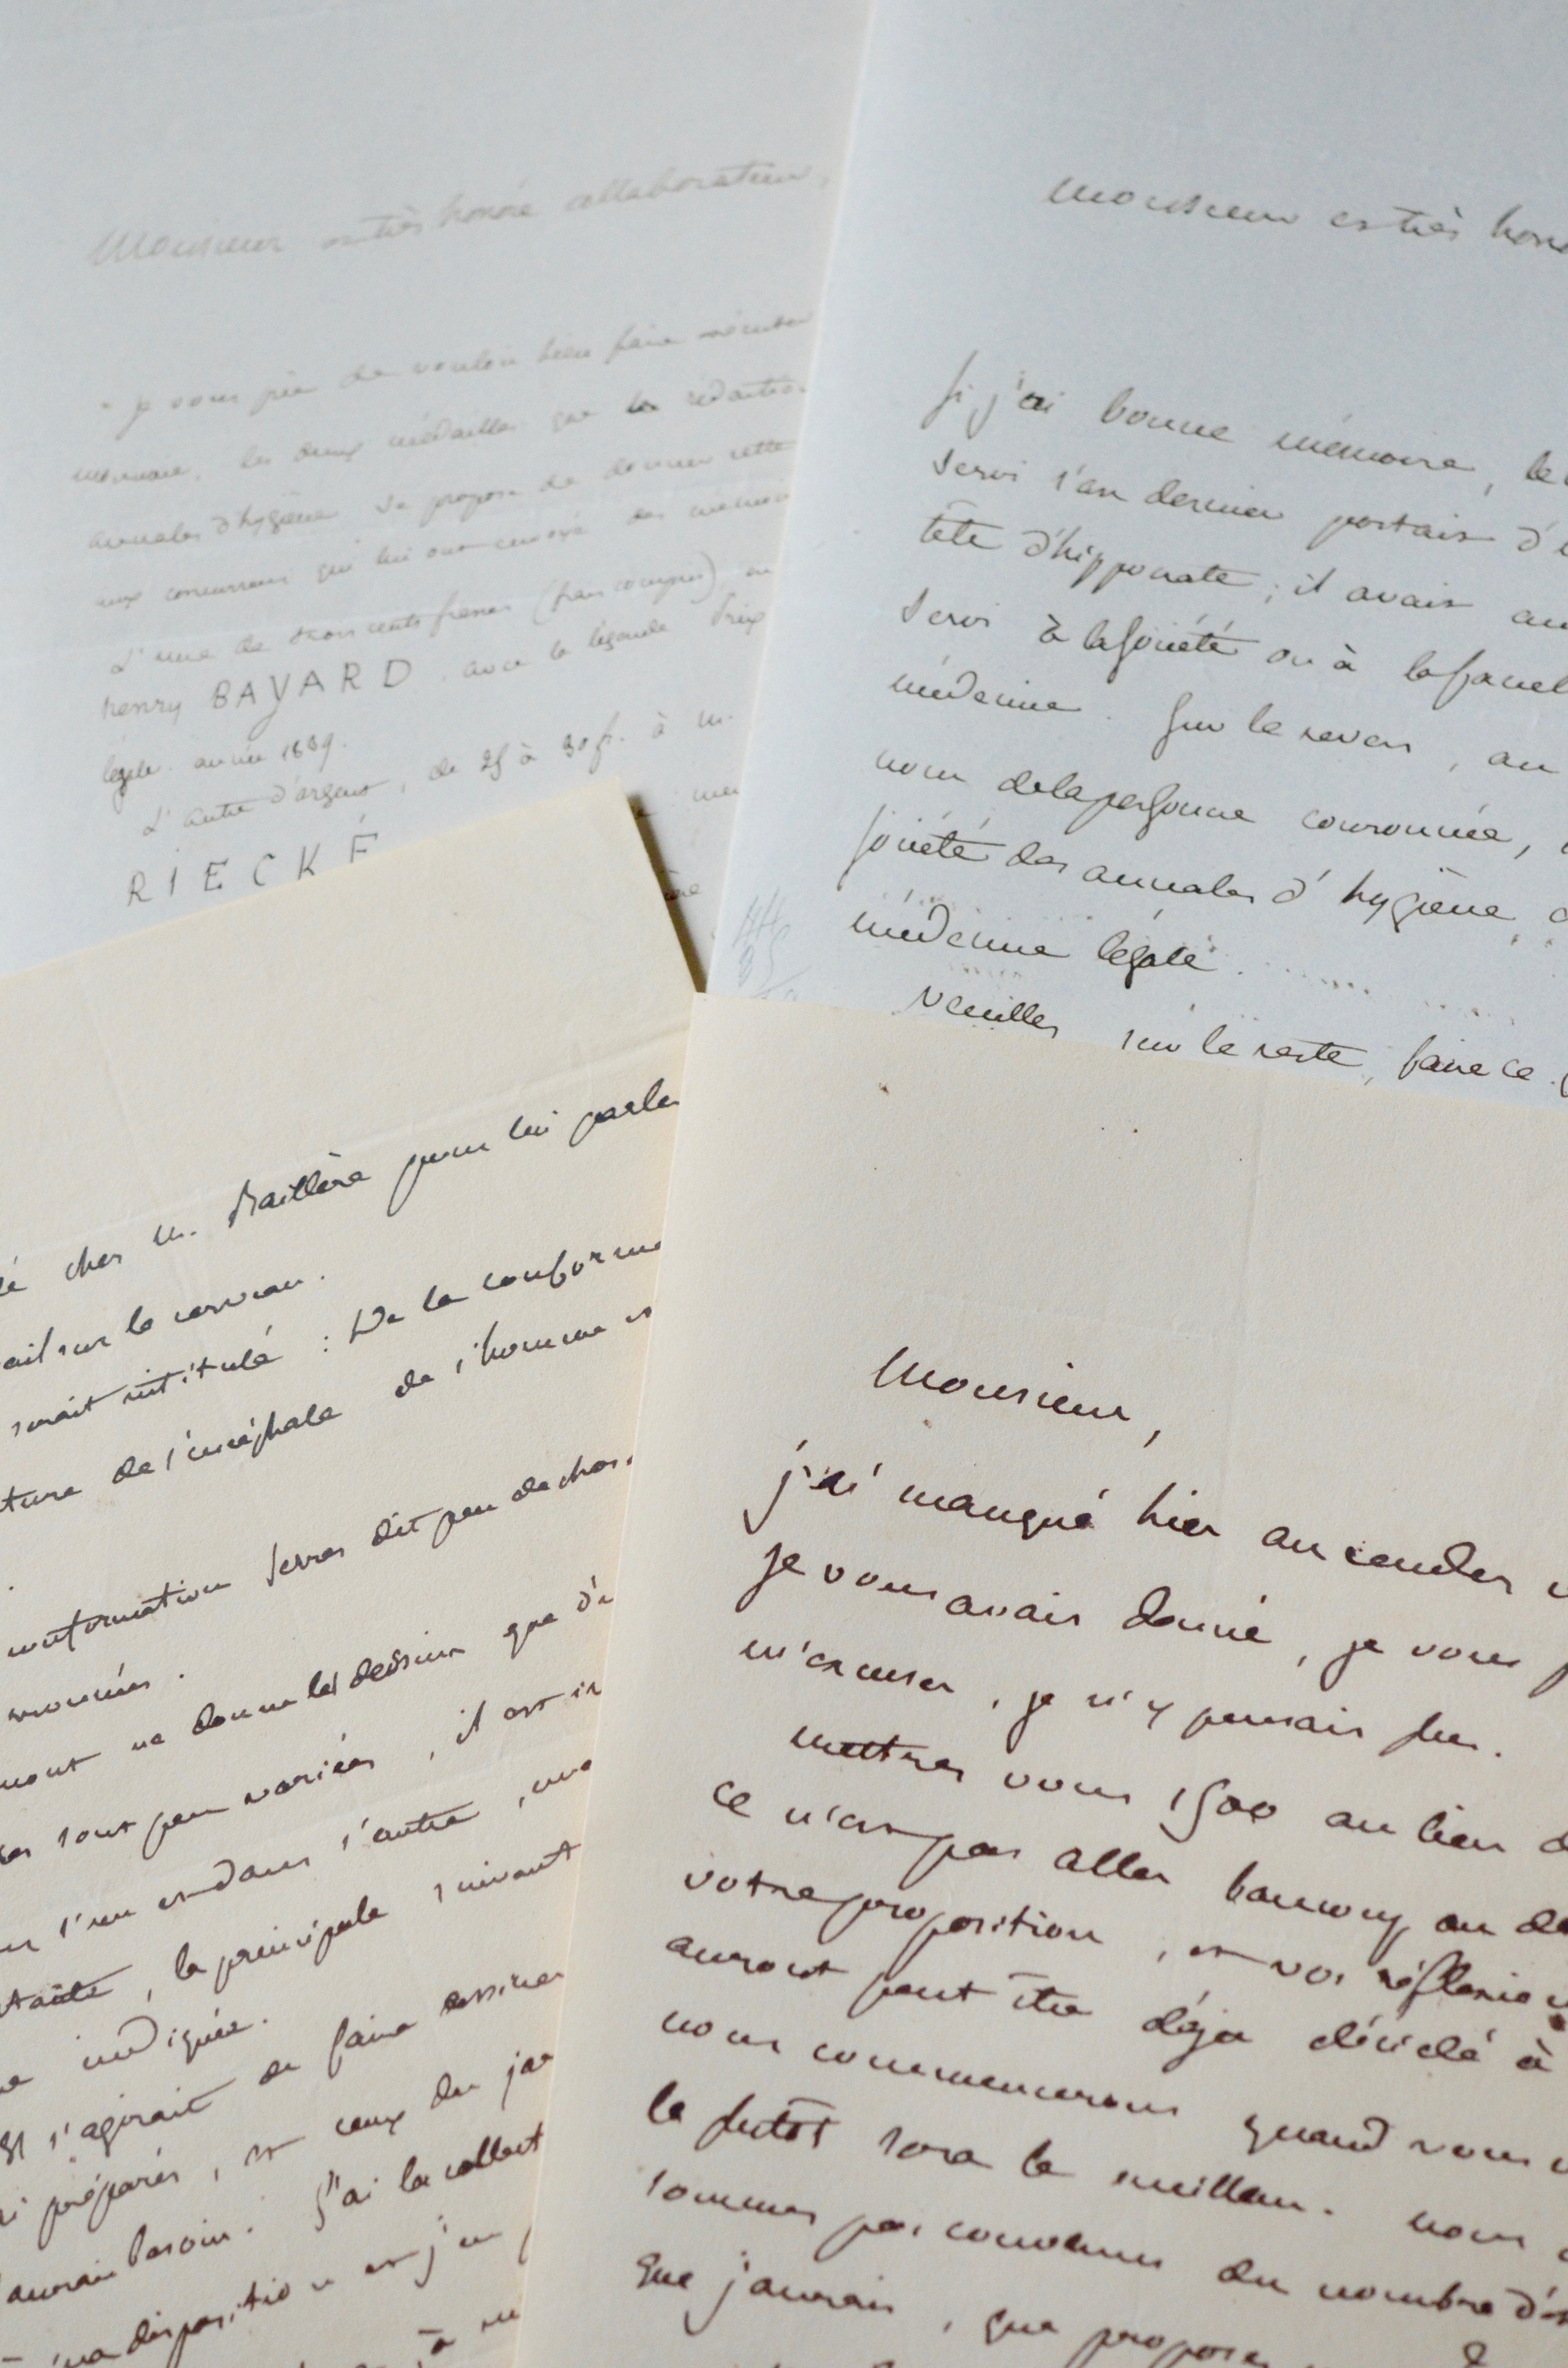 Monsieur et très honoré collaborateur,
je vous prie de vouloir bien faire
monnaie, les deux médailles que la rédaction
annales d'hygiène se propose de donner cette
aux concurrens qui lui ont envoyé des mémoi
L'une de trois cents francs (frais compris), au
henry BAYARD avec la légende Prix
légale année 1839.
L'autre d'argent, de 25 à 30 fr. à M.
RIECKÉ
Monsieur et très hono
Si j'ai bonne mémoire, le
servi l'an dernier portait d'u
tête d'hippocrate ; il avait
servi à la société ou à la facul
médecine. Sur le revers, au
nom de la personne couronnée,
société des annales d'hygiène
médecine légale.
veuillez sur le reste, faire ce
chez M. Baillère pour lui parler
ail sur le cerveau.
serait intitulé : De la conforma
ture de l'encéphale de l'homme et
conformation Serres dit peu de chos
ne donne les dessins que d'
sont peu variées, il est in
l'un et dans l'autre,
la principale suivant
indiquée.
Il s'agirait de faire dessiner
préparés, et ceux du jar
aurais besoin. J'ai la collect
ma disposition et j'en
à
Monsieur,
j'ai manqué hier au rendez v
je vous avais donné, je vous p
m'excuser, je n'y pensais plus.
mettez vous 1500 au lieu d
ce n'est pas aller beaucoup au de
votre proposition, et vos réflexion
auront peut être déja décidé à
nous commencerons quand vous v
le plutôt sera le meilleur. nous
sommes pas convenus du nombre d'ex
que j'aurais, que proposez